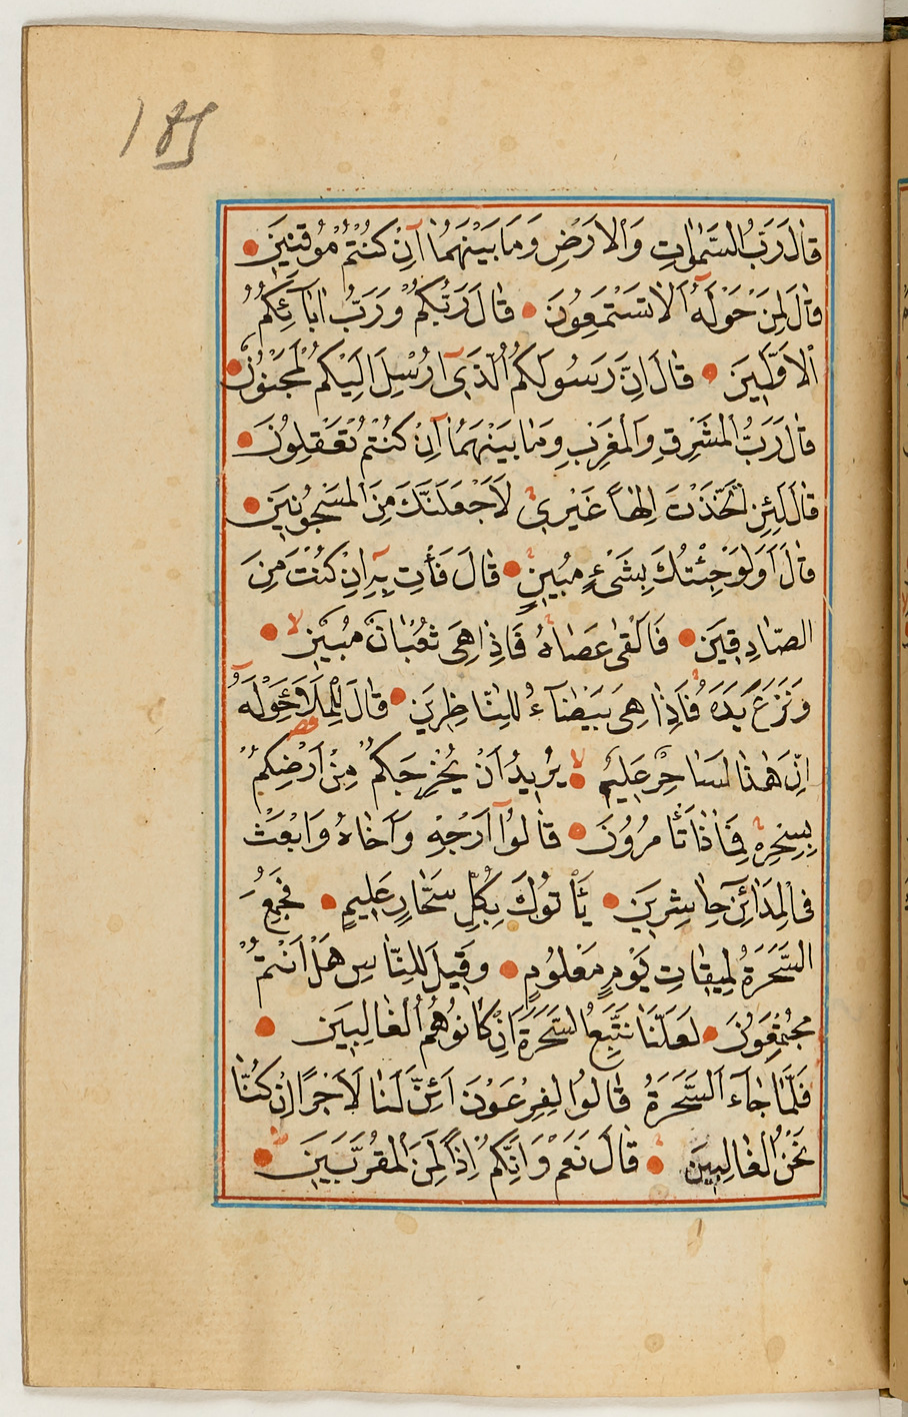 189
قَالَ رَبُّ السَّمٰوَاتِ وَالْاَرْضِ وَمَا بَيْنَهُمَا اِنْ كُنْتُمْ مُوقِنِينَ
قَالَ لِمَنْ حَوْلَهُ اَلَا تَسْتَمِعُونَ قَالَ رَبُّكُمْ وَرَبُّ اٰبَآئِكُمُ
الْاَوَّلِينَ قَالَ اِنَّ رَسُولَكُمُ الَّذِى اُرْسِلَ اِلَيْكُمْ لَمَجْنُونٌ
قَالَ رَبُّ الْمَشْرِقِ وَالْمَغْرِبِ وَمَا بَيْنَهُمَا اِنْ كُنْتُمْ تَعْقِلُونَ
قَالَ لَئِنِ اتَّخَذْتَ اِلٰهًا غَيْرِى لَاَجْعَلَنَّكَ مِنَ الْمَسْجُونِينَ
قَالَ اَوَلَوْ جِئْتُكَ بِشَىْءٍ مُبِينٍ قَالَ فَأْتِ بِهِ اِنْ كُنْتَ مِنَ
الصَّادِقِينَ فَاَلْقٰى عَصَاهُ فَاِذَا هِىَ ثُعْبَانٌ مُبِينٌ لا
وَنَزَعَ يَدَهُ فَاِذَا هِىَ بَيْضَآءُ لِلنَّاظِرِينَ قَالَ لِلْمَلَاِ حَوْلَهُ
اِنَّ هٰذَا لَسَاحِرٌ عَلِيمٌ لا يُرِيدُ اَنْ يُخْرِجَكُمْ مِنْ اَرْضِكُمْ
بِسِحْرِهِ فَمَاذَا تَأْمُرُونَ قَالُوا اَرْجِهْ وَاَخَاهُ وَابْعَثْ
فِى الْمَدَائِنِ حَاشِرِينَ يَأْتُوكَ بِكُلِّ سَحَّارٍ عَلِيمٍ فَجُمِعَ
السَّحَرَةُ لِمِيقَاتِ يَوْمٍ مَعْلُومٍ وَقِيلَ لِلنَّاسِ هَلْ اَنْتُمْ
مُجْتَمِعُونَ لَعَلَّنَا نَتَّبِعُ السَّحَرَةَ اِنْ كَانُوا هُمُ الْغَالِبِينَ
فَلَمَّا جَآءَ السَّحَرَةُ قَالُوا لِفِرْعَوْنَ اَئِنَّ لَنَا لَاَجْرًا اِنْ كُنَّا
نَحْنُ الْغَالِبِينَ قَالَ نَعَمْ وَاِنَّكُمْ اِذًا لَمِنَ الْمُقَرَّبِينَ